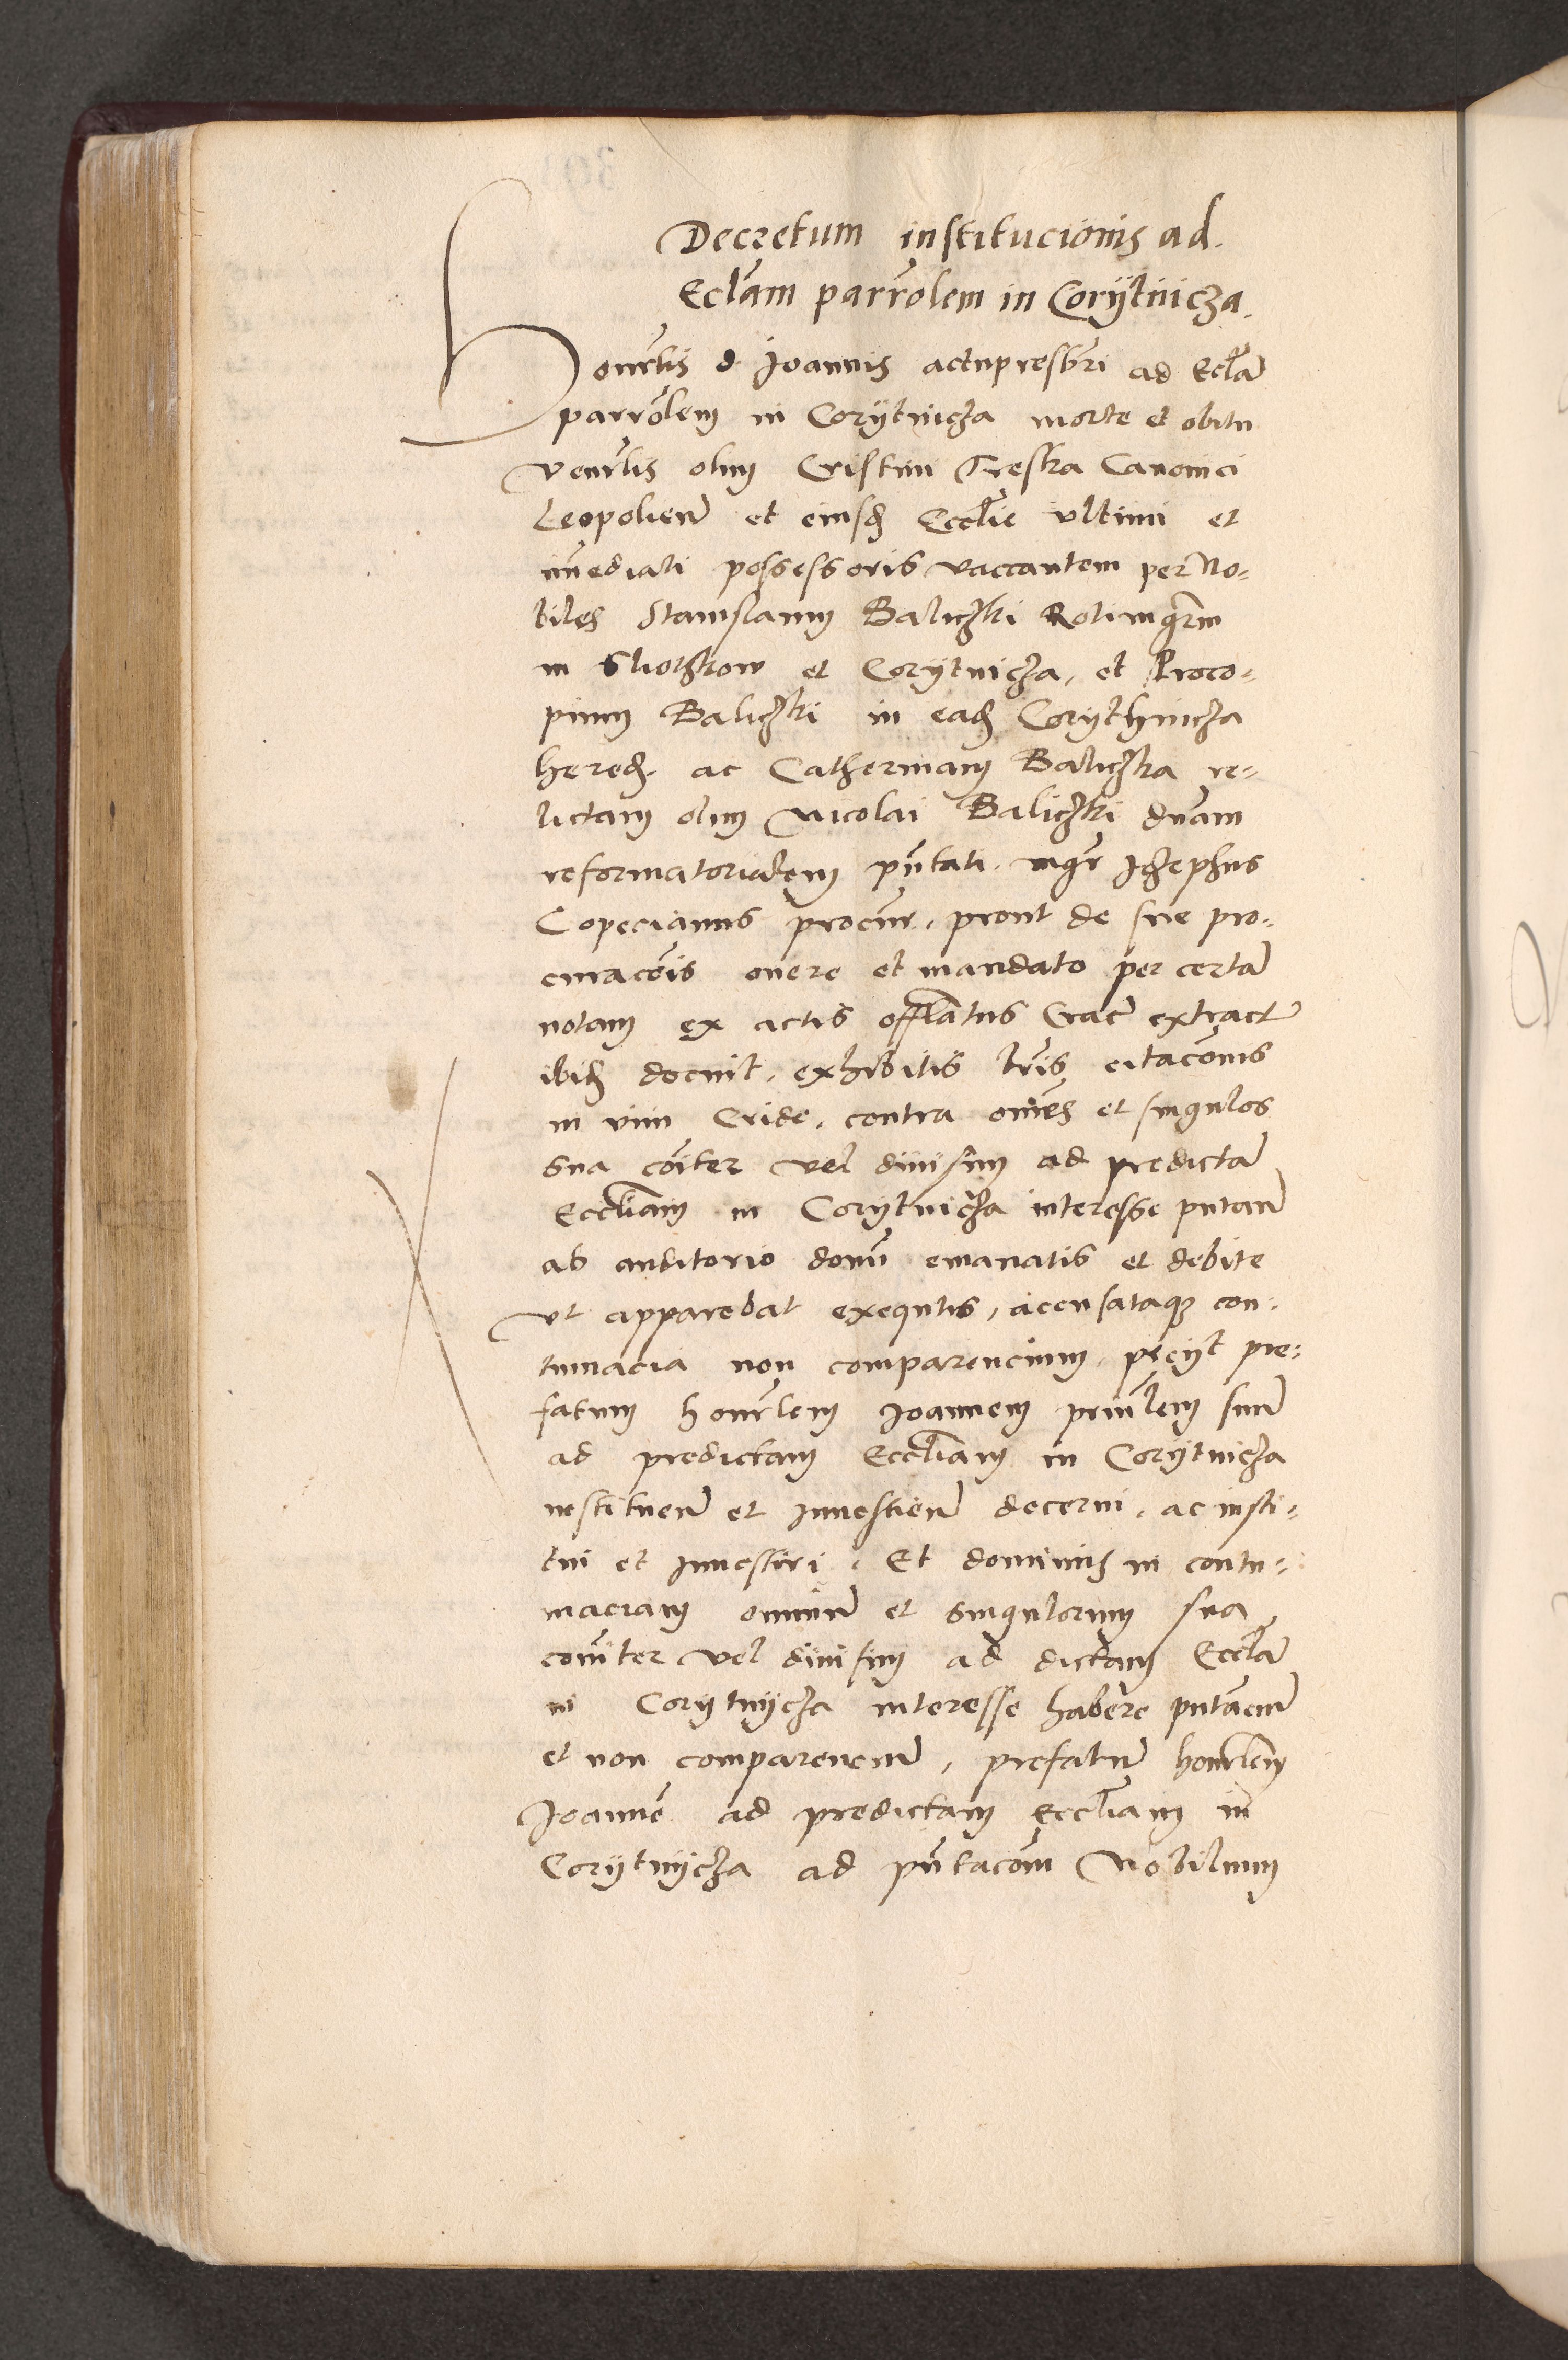 Decretum institucionis ad.
Eclam parrolem in Corytnicza.
Honrlis d. Joannis actupresbri ad Eccla
parrolem in Corytnicza morte et obitu
venrlis olim Cristini Treska Canonici
Leopolien et eiusd Ecclie ultimi et
immediati possessoris vaccantem per No-
biles Stanislaum Baliczki Rotmgrm
in Sliotzkow et Corytnicza, et Proco-
pium Baliczki in ead Corythnicza
hered. ac Catherinam Baliczka re-
lictam olim Nicolai Baliczki dnam
reformatorialem pntati. mgr Jozephus
Copecianus procur. prout de sue pro-
curacois onere et mandato per certa
notam ex actis offlatus Crac extract
ibid docuit, exhibitis lris citaconis
in vim Cride, contra omes et singulos
sua coiter vel divisim ad predicta
Eccliam in Corytnicza interesse putan
ab auditorio domi emanatis et debite
ut apparebat exequtis, acensataque con-
tumacia non comparencium, peciit pre-
fatum honrlem Joannem prinlem suu
ad predictam Eccliam in Corytnicza
instituen et investien decerni, ac insti-
tui et investiri. Et dominus in contu-
maciam omniu et singulorum sua
coniter vel divisim ad dictam Eccla
in Corytnycza interesse habere putaciu
et non comparenciu, prefatu honrlem
Joanne ad predictam eccliam in
Corytnycza ad pntacom Nobilium